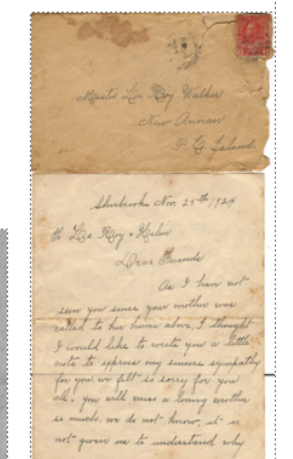 Master Lee Roy Walker
New Annan
P. E. Island
Sherbrooke Nov. 25th 1924
To Lee Roy & Helen
Dear Friends
As I have not
seen you since your mother was
called to her home above, I thought
I would like to write you a little
note to express my sincere sympathy
for you, we felt so sorry for you
all, you will miss a loving mother
so much, we do not know, it is
not given us to understand why